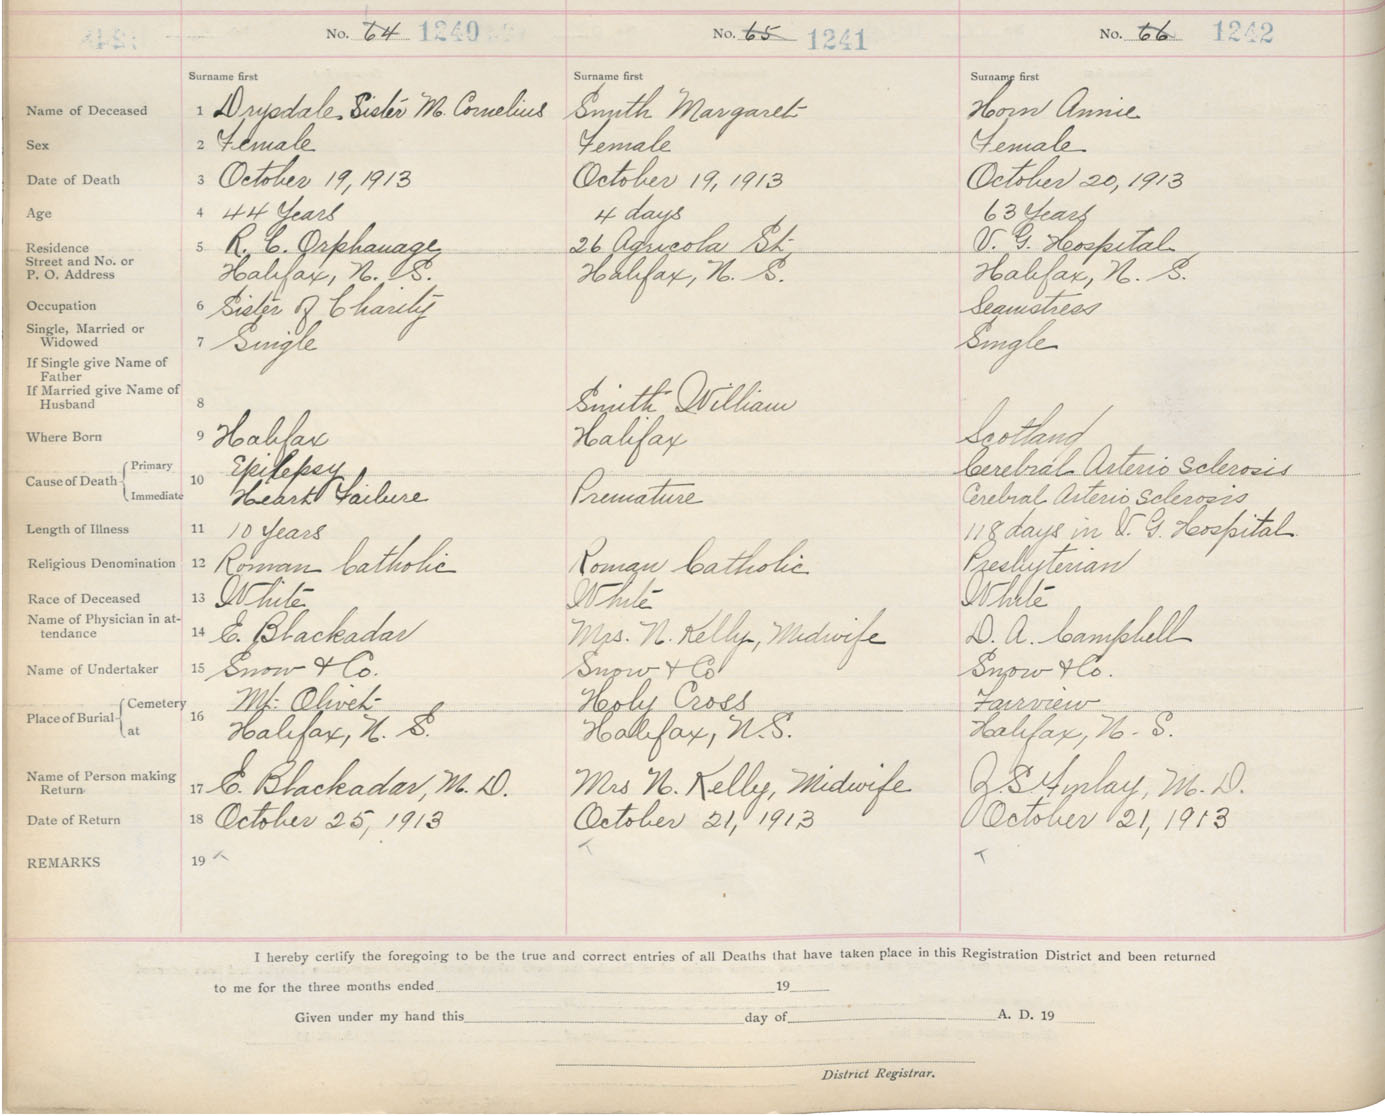 No. 64 1240 No. 65 1241 No. 66 1242
Surname first Surname first Surname first
Name of Deceased 1 Drysdale, Sister M. Cornelius Smith Margaret Horn Annie
Sex 2 Female Female Female
Date of Death 3 October 19, 1913 October 19, 1913 October 20, 1913
Age 4 44 Years 4 days 63 Years
Residence 5 R. C. Orphanage 26 Agricola St. V. G. Hospital
Street and No. or
P. O. Address Halifax, N. S. Halifax, N. S. Halifax, N. S.
Occupation 6 Sister of Charity Seamstress
Single, Married or
Widowed 7 Single Single
If Single give Name of
Father
If Married give Name of
Husband 8 Smith William
Where Born 9 Halifax Halifax Scotland
Cause of Death 10
Primary Epilepsy Cerebral Arterio Sclerosis
Immediate Heart Failure Premature Cerebral Arterio Sclerosis
Length of Illness 11 10 Years 118 days in V. G. Hospital
Religious Denomination 12 Roman Catholic Roman Catholic Presbyterian
Race of Deceased 13 White White White
Name of Physician in at-
tendance 14 E. Blackadar Mrs. N. Kelly, Midwife D. A. Campbell
Name of Undertaker 15 Snow & Co. Snow & Co Snow & Co.
Place of Burial 16
Cemetery Mt. Olivet Holy Cross Fairview
at Halifax, N. S. Halifax, N.S. Halifax, N. S.
Name of Person making
Return 17 E. Blackadar, M. D. Mrs N. Kelly, Midwife S Finlay, M. D.
Date of Return 18 October 25, 1913 October 21, 1913 October 21, 1913
REMARKS 19
I hereby certify the foregoing to be the true and correct entries of all Deaths that have taken place in this Registration District and been returned
to me for the three months ended 19
Given under my hand this day of A. D. 19
District Registrar.